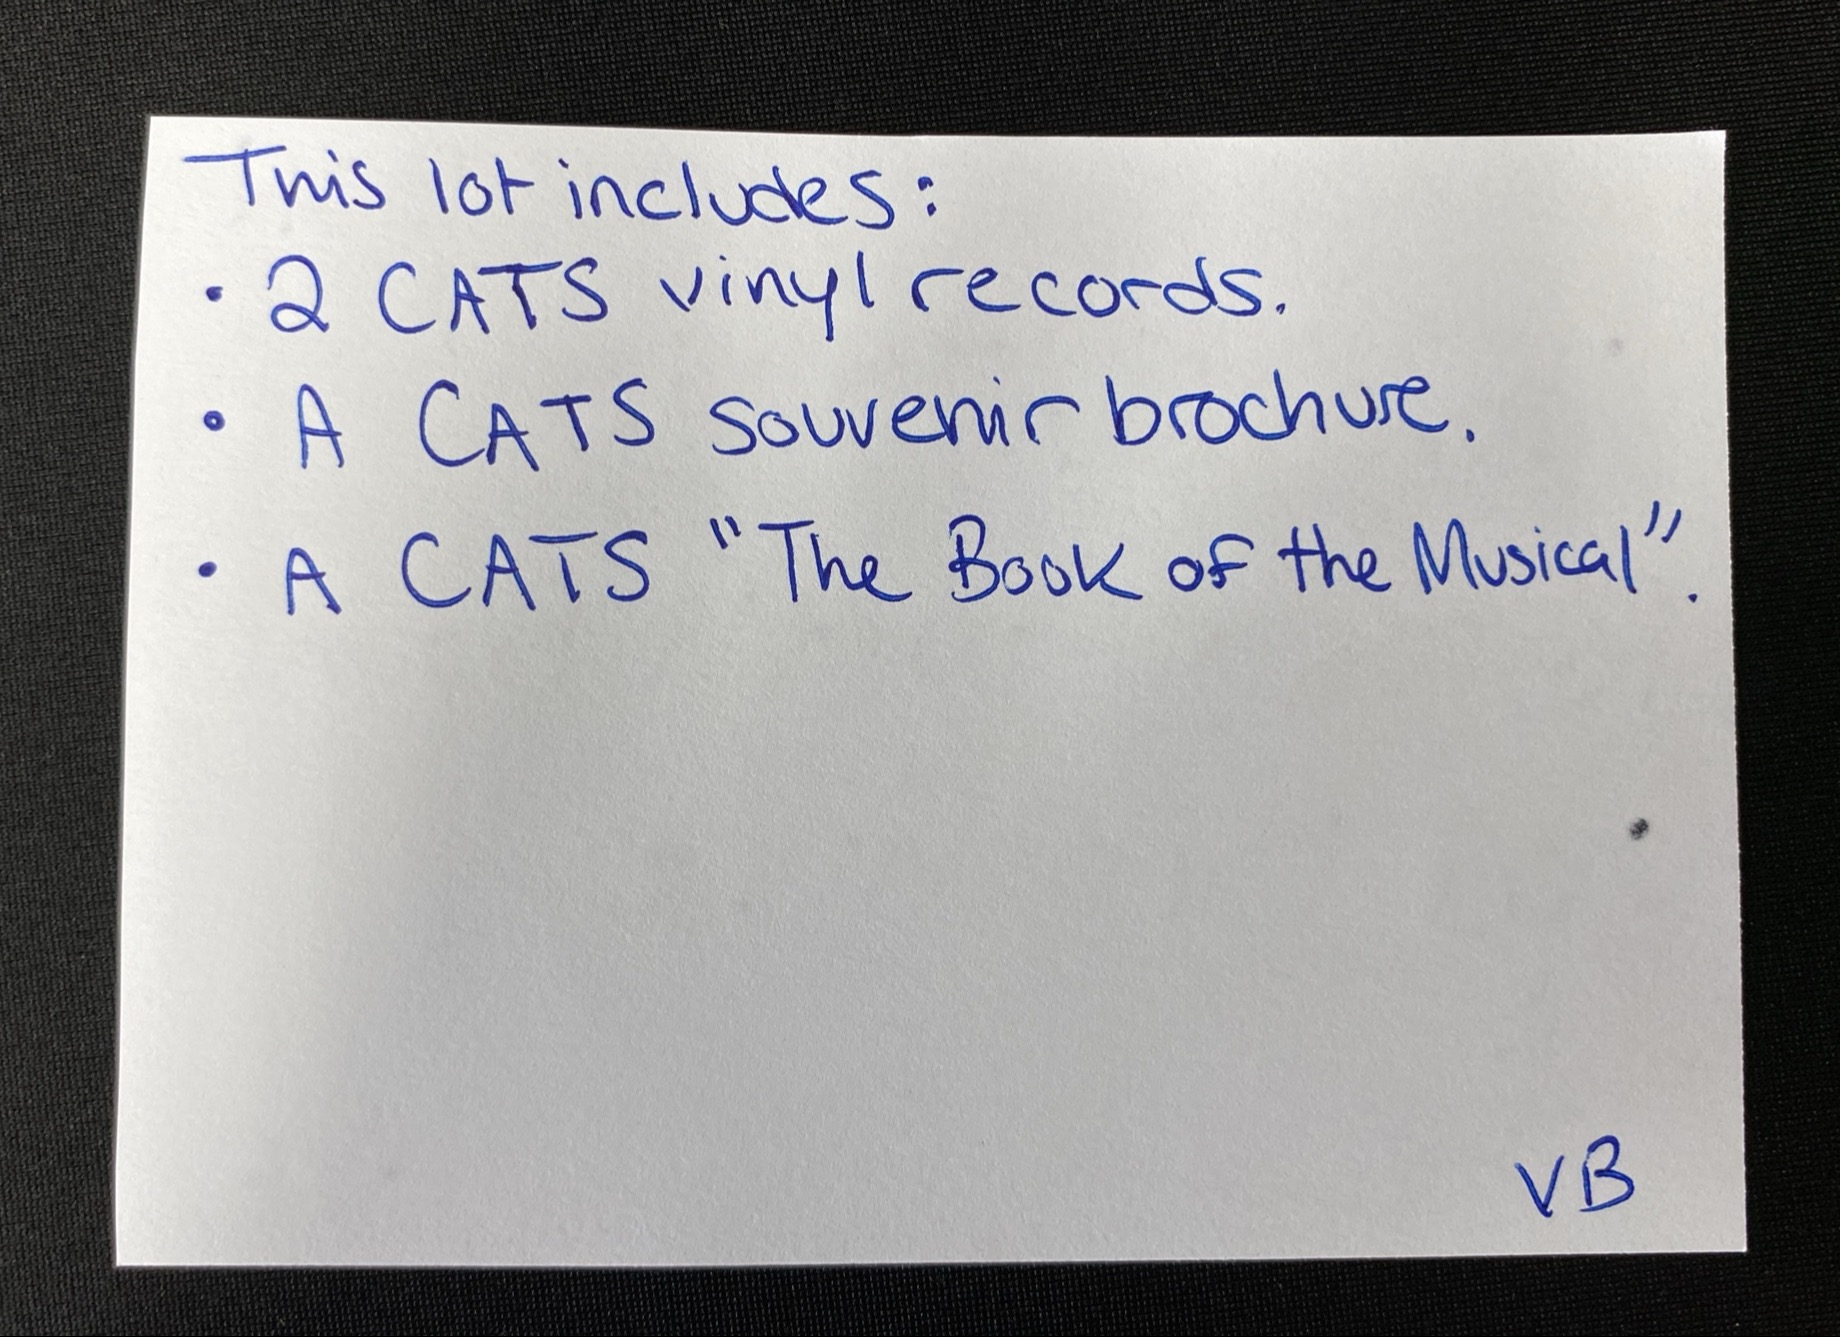 This lot includes:
• 2 CATS vinyl records.
• A CATS souvenir brochure.
• A CATS "The Book of the Musical".
VB